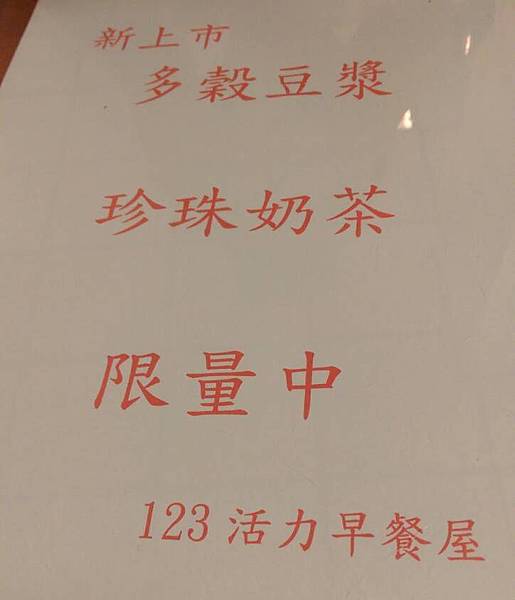 新上市
多穀豆漿
珍珠奶茶
限量中
123活力早餐屋